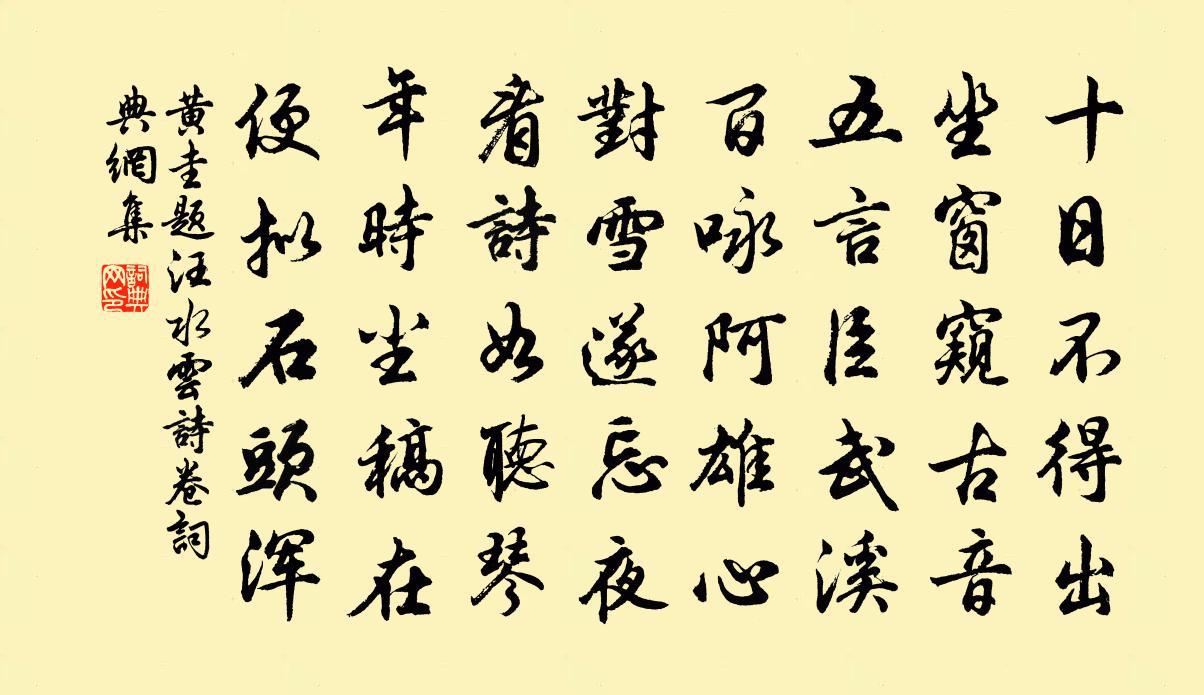 十日不得出
坐窗窺古音
五言臣武溪
百咏阿雄心
對雪遂忘夜
看詩如聽琴
年時尘稿在
便拟石頭浑
黄圭题汪水雲詩卷詞
典網集
詞典
网印